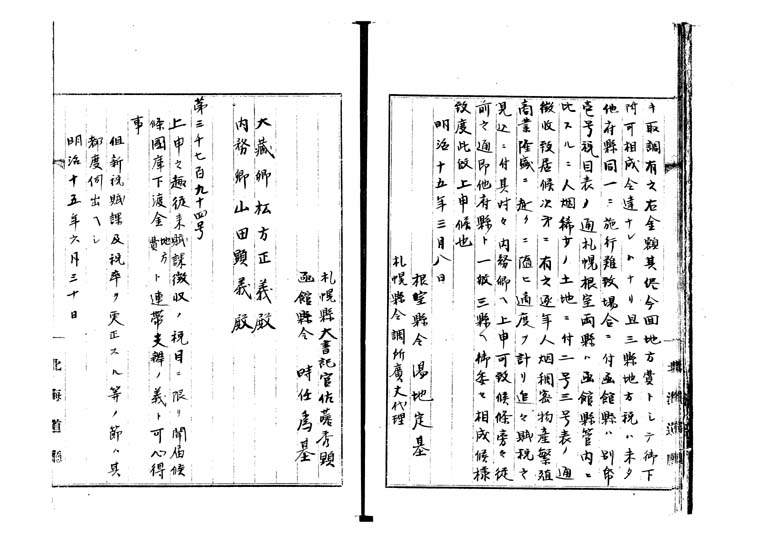 キ取調有之右金額其侭今回地方費トシテ御下
附可相成全達ナレトナリ且三縣地方税ハ未タ
他府縣同一ニ施行難致場合ニ付函館縣ハ別帋
壱号税目表ノ通札幌根室両縣ハ函館縣管内ニ
比スルニ人烟稀少ノ土地ニ付二号三号表ノ通
徴収致居候次第ニ有之逐年人烟稠密物産繁殖
商業隆盛ニ赴クニ随ヒ適度ヲ計リ追々賦税之
見込ニ付其時々内務卿ヘ上申可致候條旁々従
前之通即他府縣ト一般三縣ヘ御委任相成候様
致度此段上申候也
明治十五年三月八日
根室縣令湯地定基
札幌縣令調所廣丈代理
札幌縣大書記官佐藤秀顕
函館縣令 時任為基
大藏卿松方正義殿
内務卿山田顕義殿
第三千七百九十四号
上申之趣従来賦課徴収ノ税目ニ限リ聞届候
條國庫下渡金地方費ト連帯支辨ノ義ト可心得
事
但新税賦課及税率ヲ更正スル等ノ節ハ其
都度伺出ヘシ
明治十五年六月三十日
北海道廳